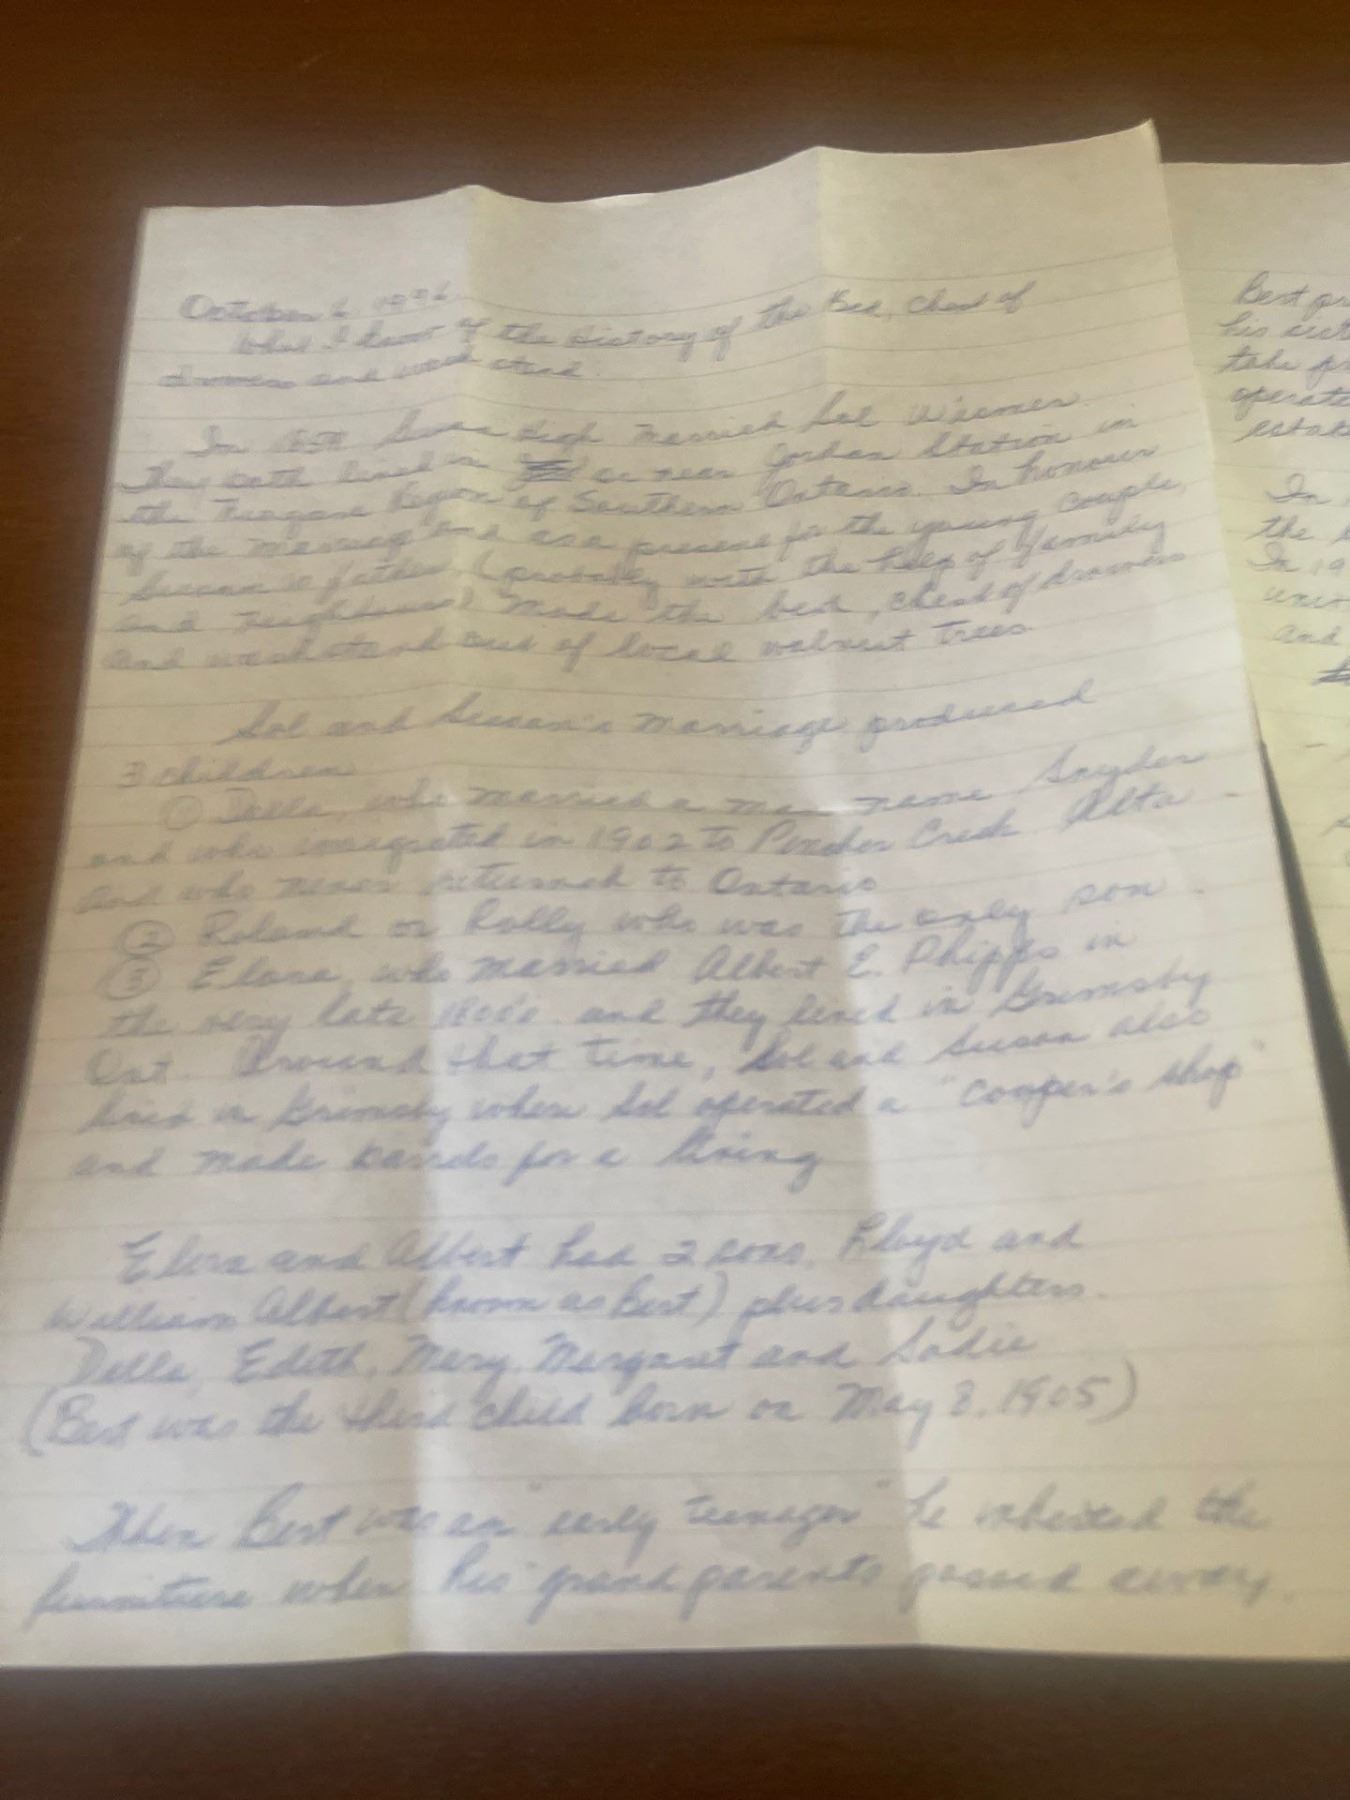 October 6 1996
What I know of the History of the Bed, Chest of
drawers and wash stand.
In Susan High married Sol Wismer
They both lived in or near Jordan Station in
the Niagara Region of Southern Ontario. In honour
of the marriage and as a present for the young couple,
Susan's father (probably with the help of family
and neighbours) made the bed, chest of drawers
and washstand out of local walnut trees.
Sol and Susan's marriage produced
3 children
① Della, who married a man name Snyder
and who imigrated in 1902 to Pincher Creek Alta
and who never returned to Ontario
② Roland or Rolly who was the only son.
③ who married Albert E. Phipps in
the very late 1800's and they lived in Grimsby
Ont. Around that time, Sol and Susan also
lived in Grimsby where Sol operated a "cooper's shop"
and made barrels for a living
and Albert had 2 sons, Lloyd and
William Albert (known as Bert) plus daughters.
Della, Edith, Mary, Margaret and Sadie
(Bert was the third child born on May 8, 1905)
When Bert was an "early teenager" he inherited the
furniture when his grandparents passed away.
Best pr
his
take
operate
estat
In
the
In 19
and